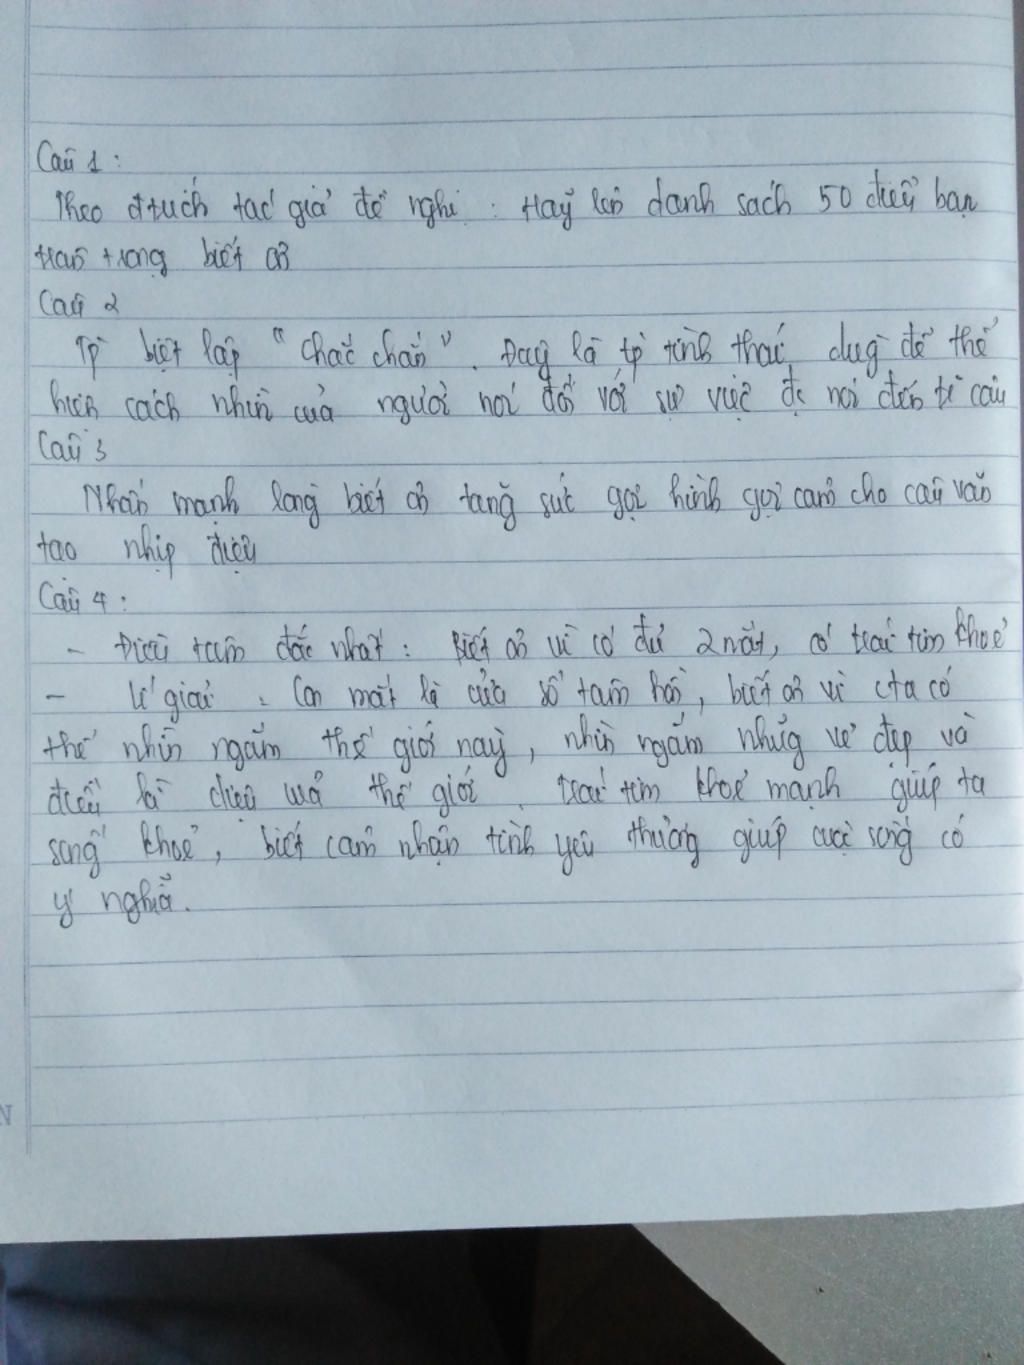 Câu 1:
Theo đtrích tác giả đề nghị : Hãy lên danh sách 50 điều bạn
trân trọng biết ơn
Câu 2
Tp biệt lập "chắc chắn". Đây là tp tình thái, dùg để thể
hiện cách nhìn của người nói đối với sự việc đc nói đến tr câu
Câu 3
Nhấn mạnh lòng biết ơn tăng sức gợi hình gợi cảm cho câu văn
tạo nhịp điệu
Câu 4:
- Điều tâm đắc nhất: Biết ơn vì có đủ 2 mắt, có trái tim khoẻ
- Lí giải : Con mắt là cửa sổ tâm hồn, biết ơn vì cta có
thể nhìn ngắm thế giới này, nhìn ngắm nhữg vẻ đẹp và
điều kì diệu của thế giới. Trái tim khoẻ mạnh giúp ta
sống khoẻ, biết cảm nhận tình yêu thương giúp cuộc sống có
ý nghĩa.
N